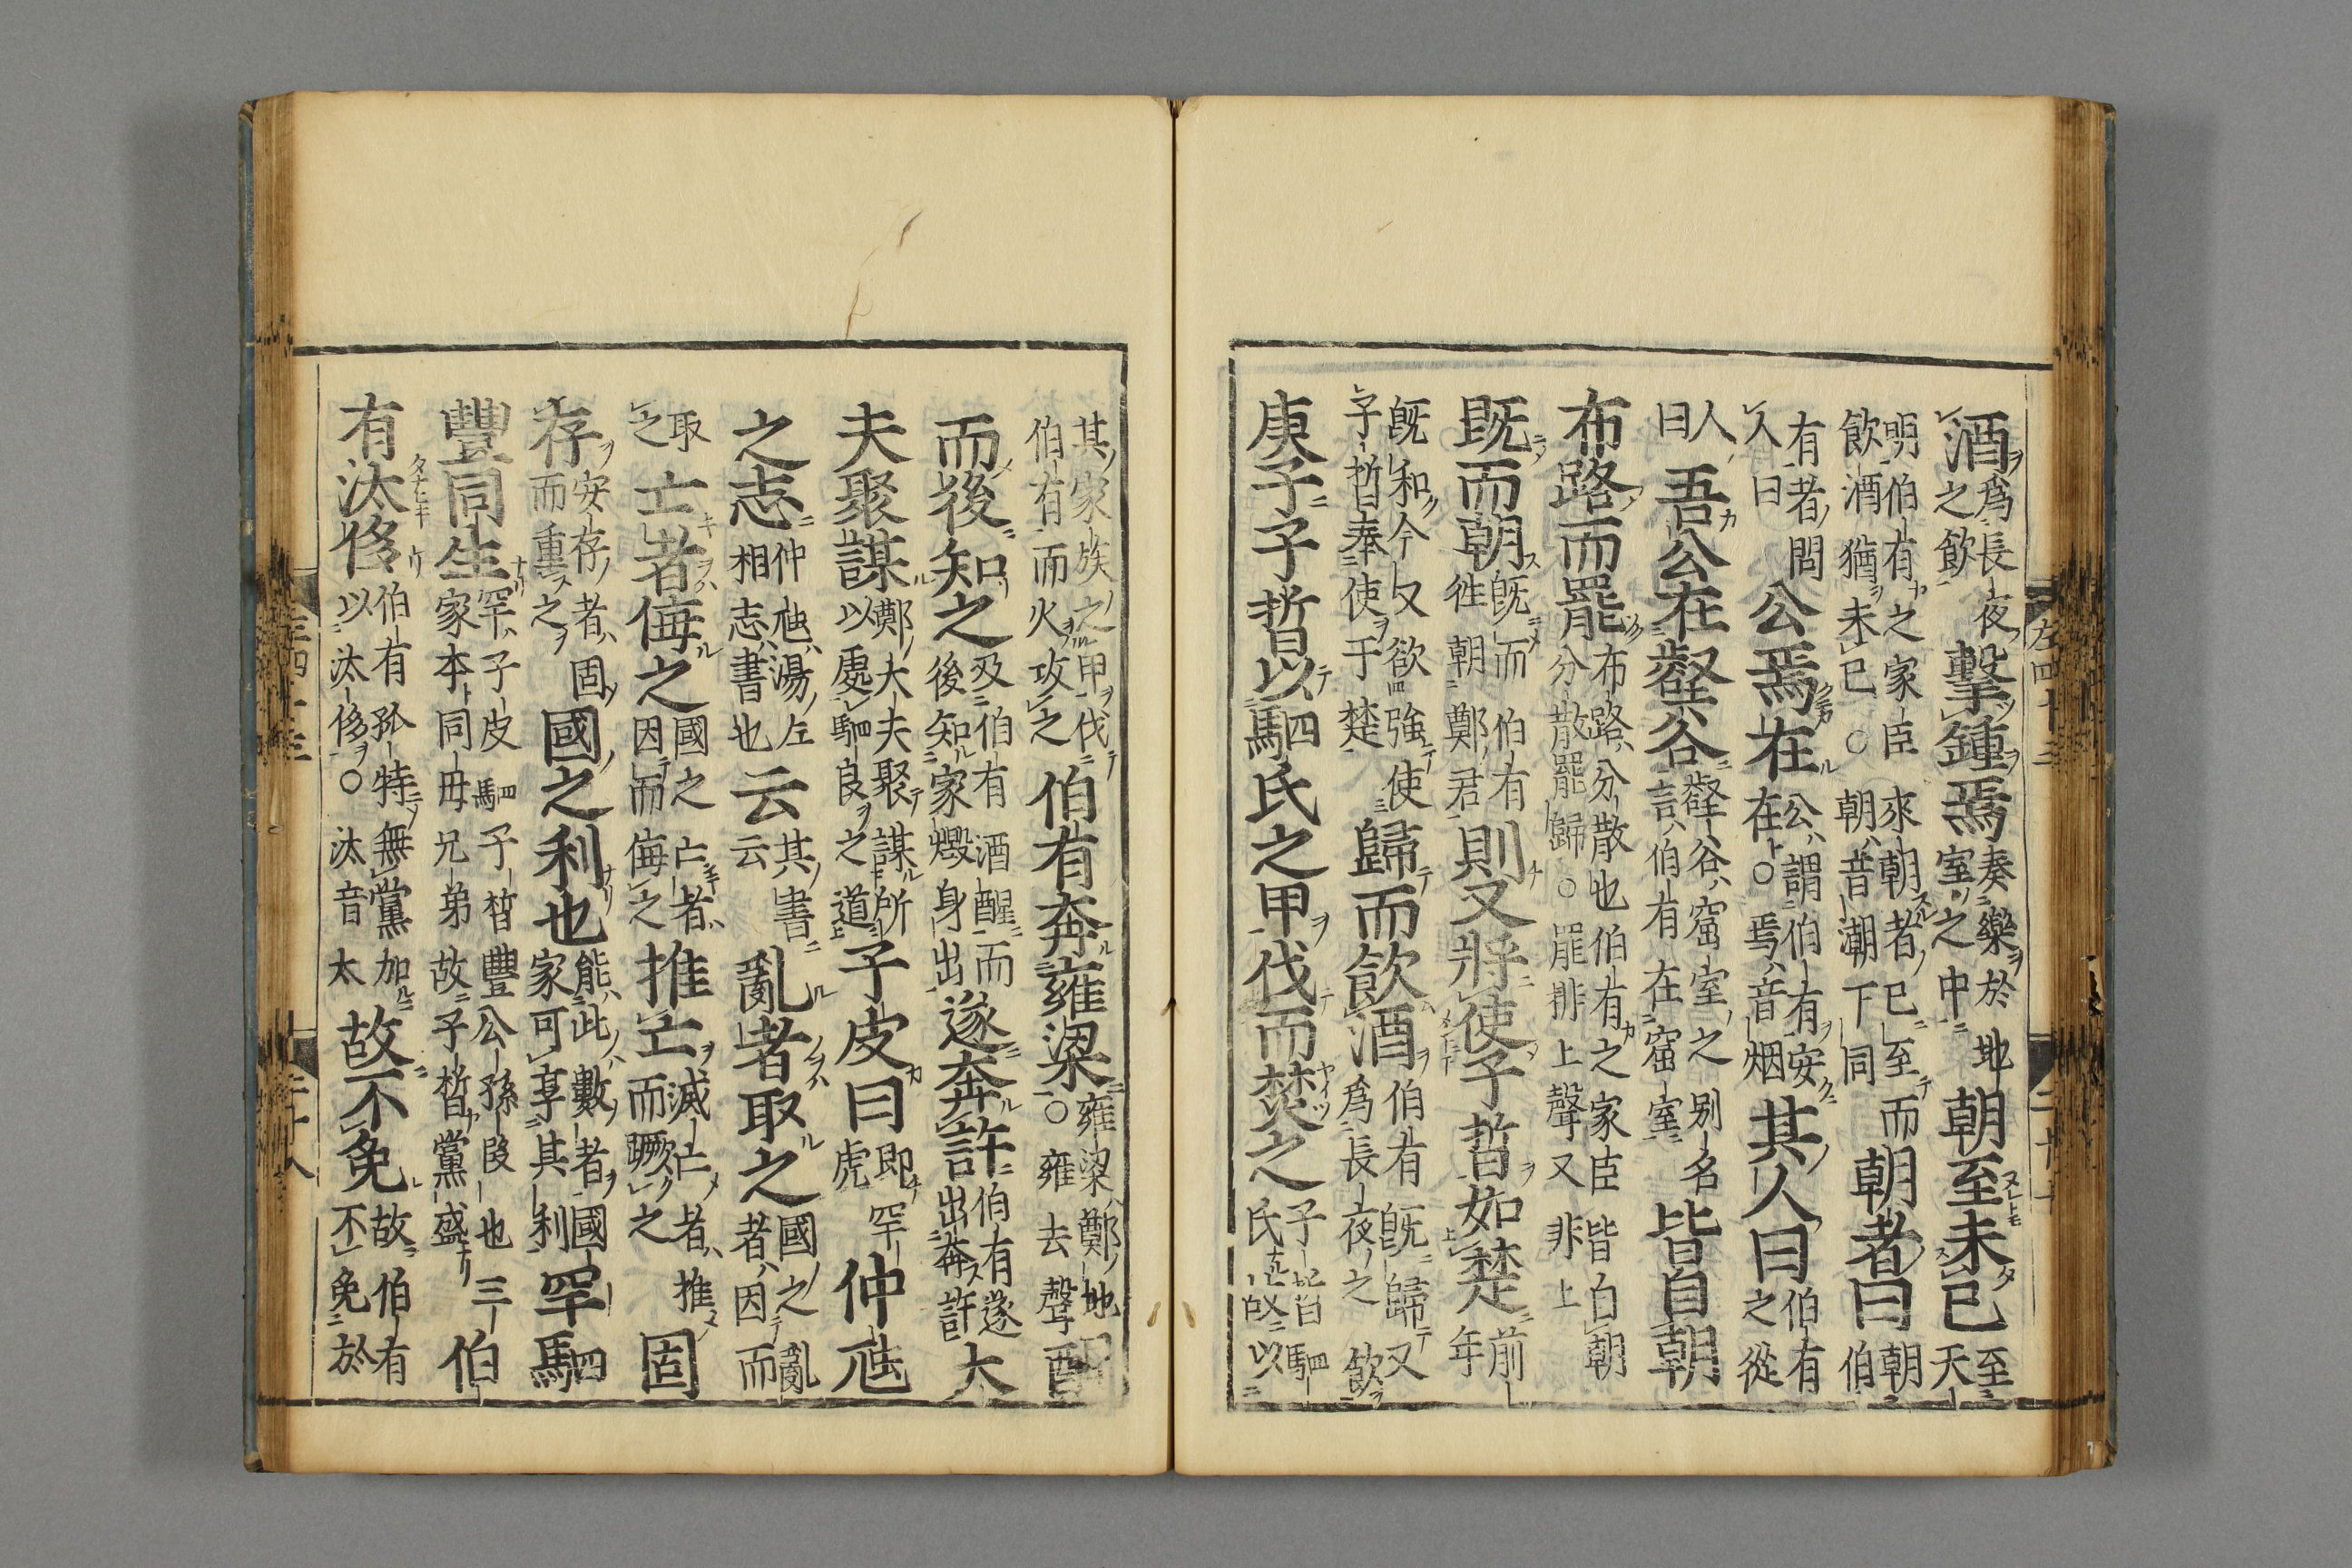 酒爲長夜之飲擊鍾焉奏樂於地室之中朝至未已至天
明伯有之家臣來朝者已至而飲酒猶未已○朝音潮下同朝者曰朝伯
有者問人曰公焉在公謂伯有安在○焉音烟其人曰伯有之從
人曰吾公在壑谷壑谷窟室之別名言伯有在窟室皆自朝
布路而罷布路分散也伯有之家臣皆白朝分散罷歸○罷排上聲又非上
既而朝既而伯有往朝鄭君則又將使子晳如楚前年
既和今又欲強使子晳奉使于楚歸而飲酒伯有既歸又爲長夜之飲
庚子子晳以駟氏之甲伐而焚之子晳駟氏故以
其家族之甲伐伯有而火攻之伯有奔雍梁雍梁鄭地○雍去聲醒
而後知之及伯有酒醒而後知家燬身出遂奔許伯有遂出奔許大
夫聚謀鄭大夫聚謀所以處駟良之道子皮曰即罕虎仲虺
之志仲虺湯左相志書也云其書云亂者取之國之亂者因而
取之亡者侮之國之亡者因而侮之推亡滅亡者推而蹶之固
存安存者固而重之國之利也能此數者國家可享其利罕駟
豐同生罕子皮駟子晳豐公孫段也三家本同母兄弟故子晳黨盛伯
有汰侈伯有孤特無黨加以汰侈○汰音太故不免故伯有不免於
左四十三
二十